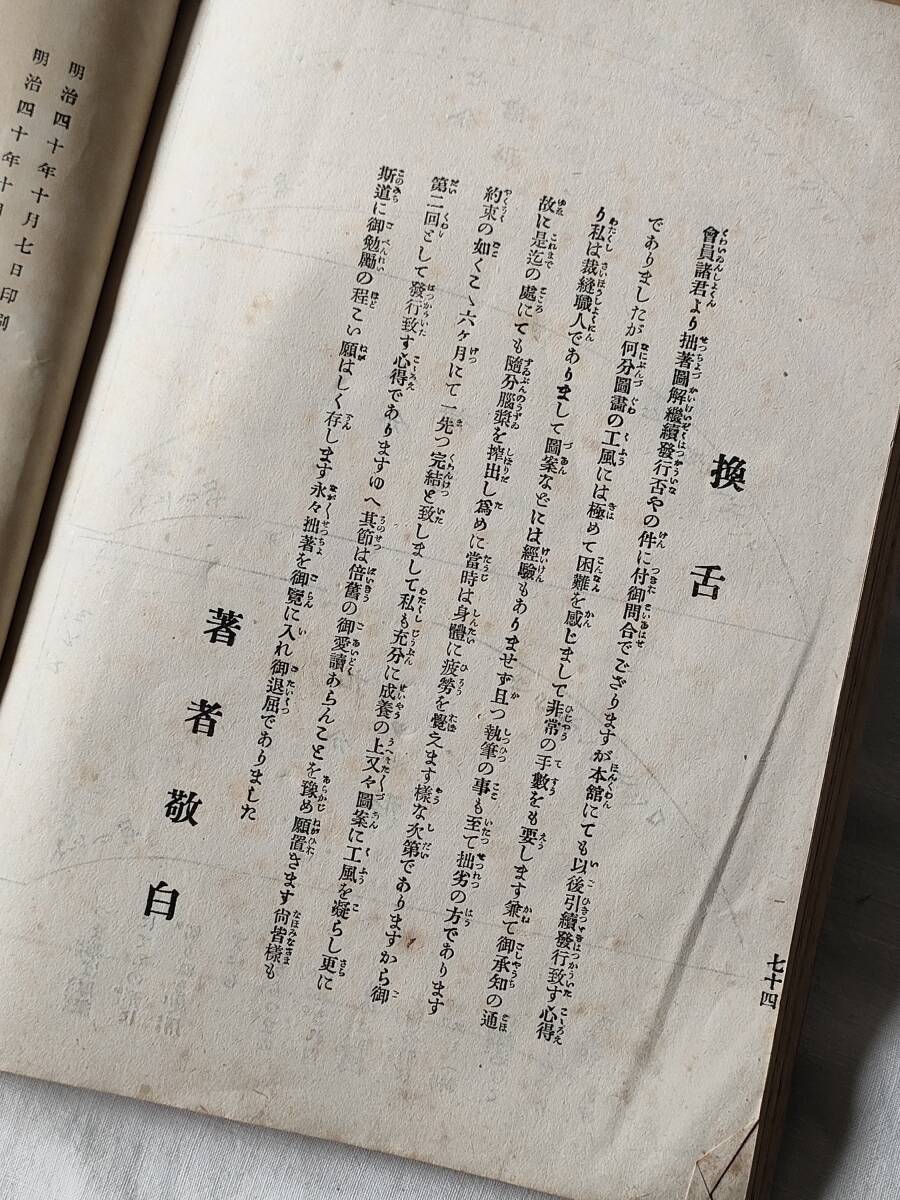 七十四
換舌
會員諸君より拙著圖解繼續發行否やの件に付御問合でござりますが本舘にても以後引續發行致す心得
でありましたが何分圖畵の工風には極めて困難を感じまして非常の手數をも要します兼て御承知の通
り私は裁縫職人でありまして圖案などには經驗もありませず且つ執筆の事も至て拙劣の方であります
故に是迄の處にても隨分腦漿を搾出し爲めに當時は身體に疲勞を覺えます樣な次第でありますから御
約束の如くこゝ六ヶ月にて一先つ完結と致しまして私も充分に成養の上又々圖案に工風を凝らし更に
第二回として發行致す心得でありますゆへ其節は倍舊の御愛讀あらんことを豫め願置きます尙皆樣も
斯道に御勉勵の程こい願はしく存します永々拙著を御覽に入れ御退屈でありました
著者敬白
明治四十年十月七日印刷
明治四十年十月